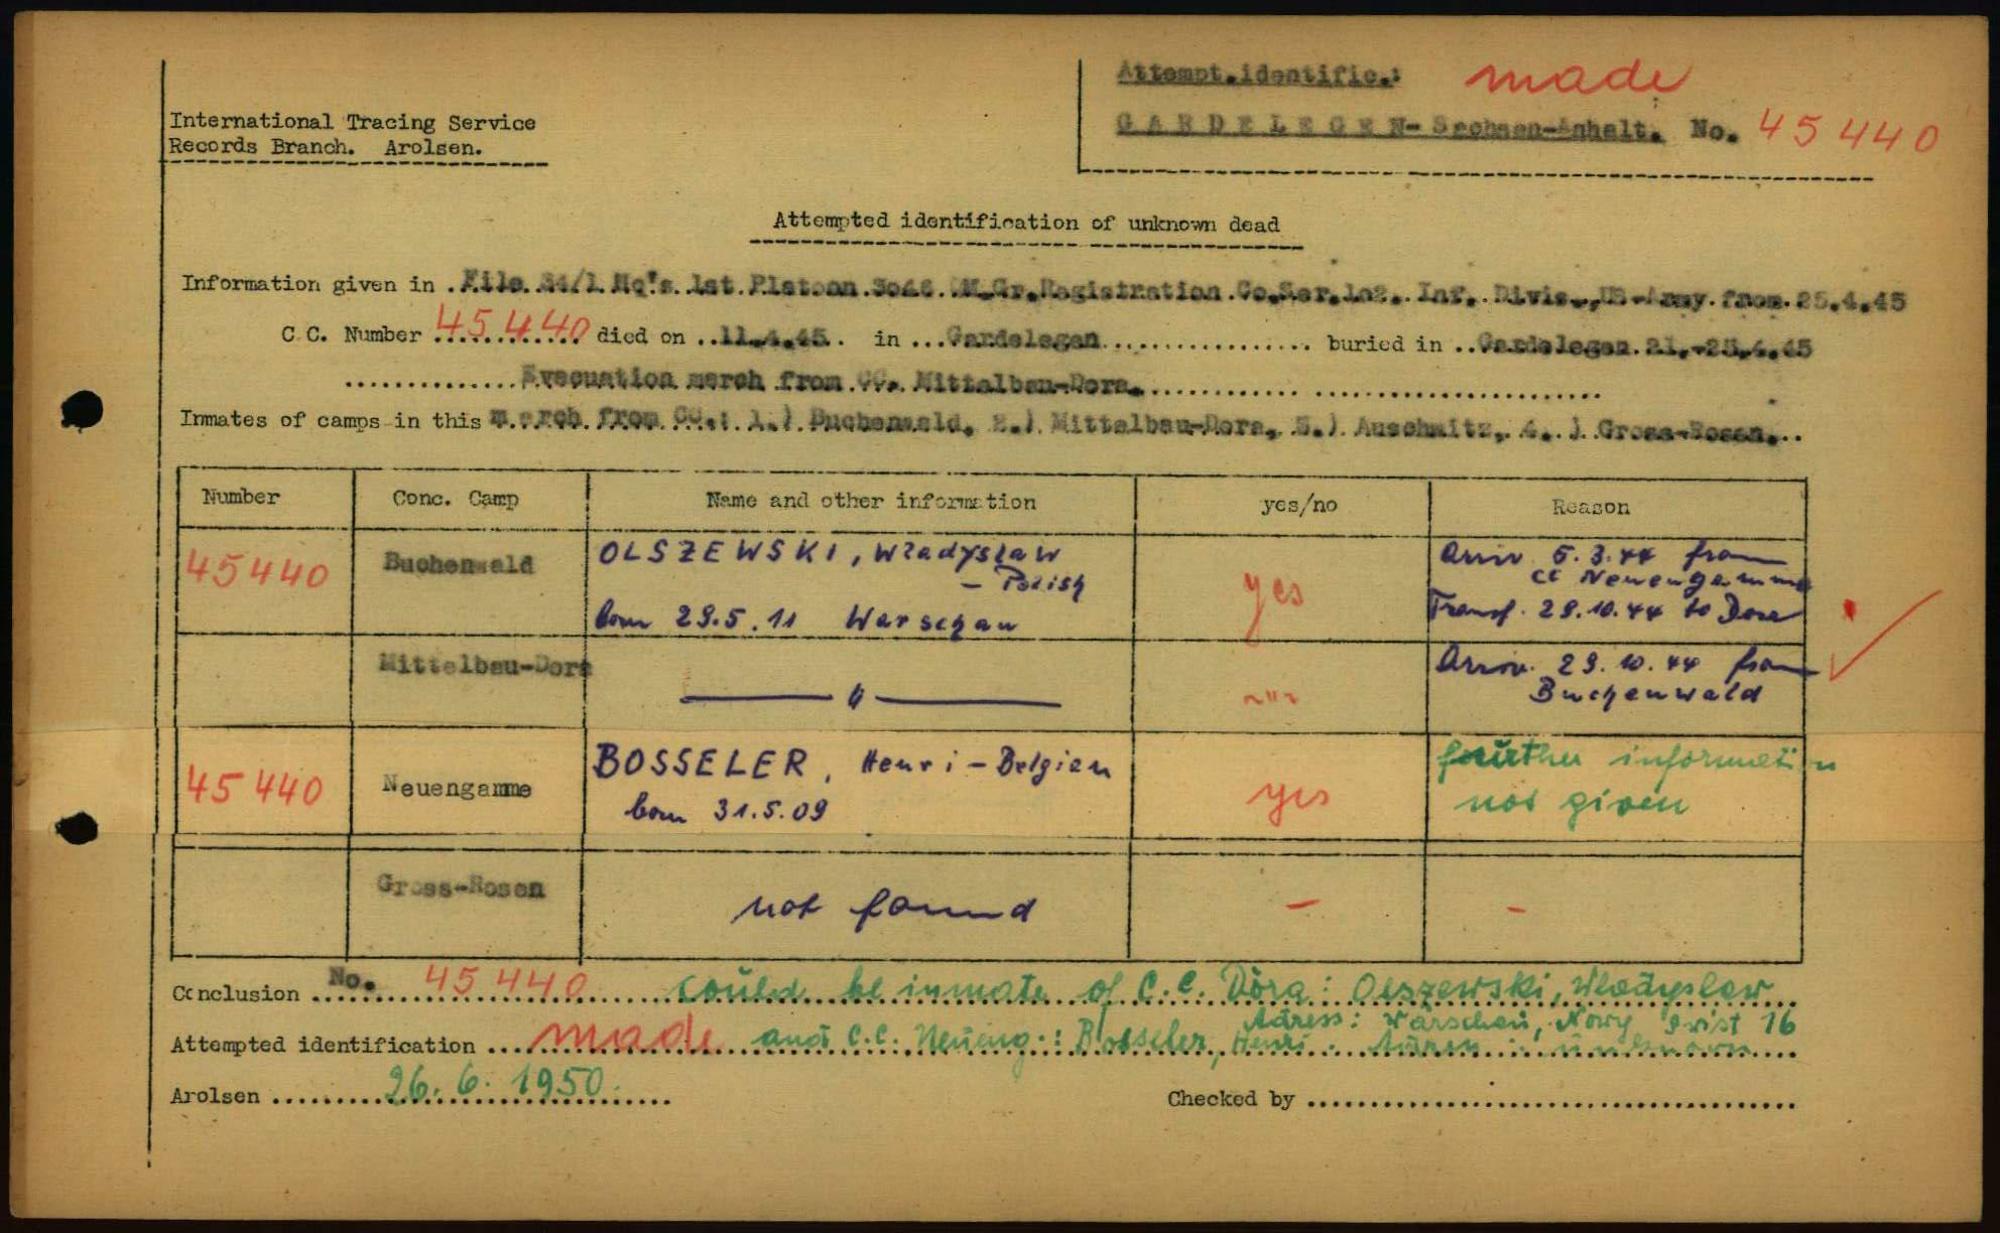 Attempt.identific.: made
GARDELEGEN- Sachsen-Anhalt. No. 45440
International Tracing Service
Records Branch. Arolsen.
Attempted identification of unknown dead
Information given in File 54/1 Hq's 1st Platoon 3046 QM.Gr.Registration Co.Ser.102. Inf. Divis., US-Army from 25.4.45
C.C. Number 45440 died on 11.4.45 in Gardelegen buried in Gardelegen 21.-25.4.45
Evacuation march from CC. Mittelbau-Dora.
Inmates of camps in this march from CC.: 1.) Buchenwald, 2.) Mittelbau-Dora, 3.) Auschwitz, 4.) Gross-Rosen.
Number Conc. Camp Name and other information yes/no Reason
45440 Buchenwald OLSZEWSKI, Władysław - Polish born 29.5.11 Warschau yes Arriv. 5.3.44 from CC Neuengamme Transf. 29.10.44 to Dora
Mittelbau-Dora — " — -"- Arriv. 29.10.44 from Buchenwald
45440 Neuengamme BOSSELER, Henri - Belgien born 31.5.09 yes further information not given
Gross-Rosen not found - -
Conclusion No. 45440 could be inmate of C.C. Dora: Olszewski, Wladyslaw
Adress: Warschau, Nowy Swist 16
Attempted identification made and C.C. Neueng.: Bosseler, Henri. Adress: unknown
Arolsen 26.6.1950. Checked by